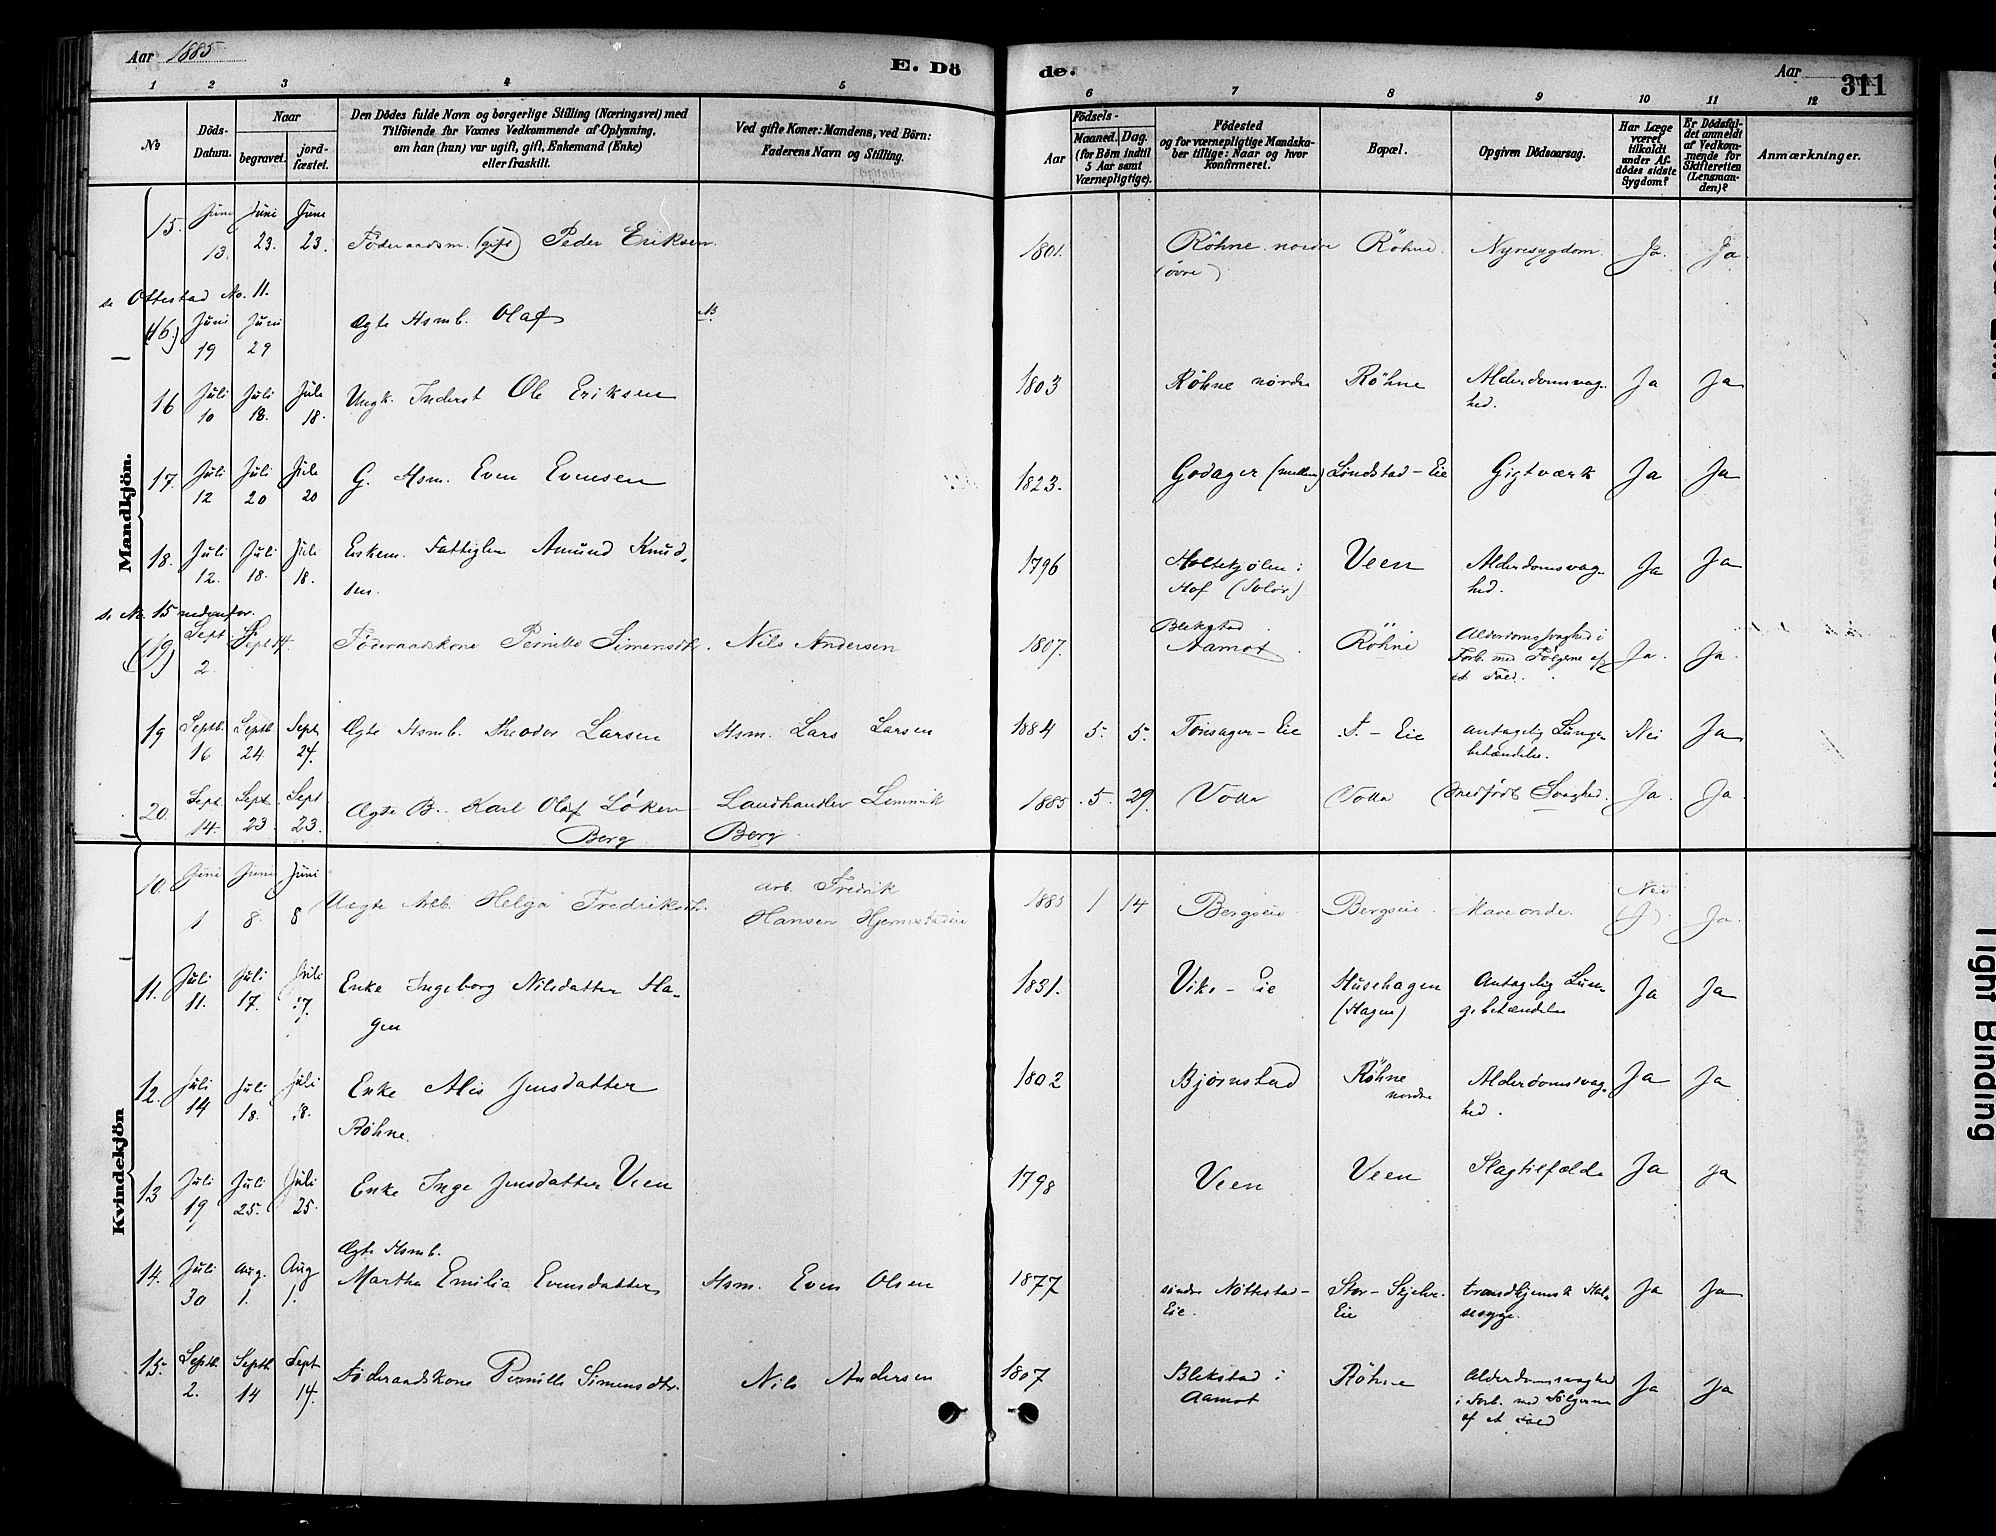 Aar 1885
E. Dö de.
Aar
311
1 2 3 4 5 6 7 8 9 10 11 12
No
Döds-Datum.
Naar
begravet.
jord-fæstet.
Den Dödes fulde Navn og borgerlige Stilling (Næringsvei) med
Tilföiende for Voxnes Vedkommende af Oplysning,
om han (hun) var ugift, gift, Enkemand (Enke)
eller fraskilt.
Ved gifte Koner: Mandens, ved Börn:
Faderens Navn og Stilling.
Födsels-
Aar
Maaned. Dag.
(for Börn indtil
5 Aar samt
Værnepligtige).
Födested
og for værnepligtige Mandska-
ber tillige: Naar og hvor
konfirmeret.
Bopæl.
Opgiven Dödsaarsag.
Har Læge
været
tilkaldt
under Af-
dödes sidste
Sygdom?
Er Dödsfal-
det anmeldt
af Vedkom-
mende for
Skifteretten
(Lensman-
den)?
Anmærkninger.
Mandkjön.
15. Juni 13. Juni 23. Juni 23. Föderaadsm. (gift) Peder Eriksen. 1801. Röhne nordre (øvre) Röhne. Nyresygdom. Ja. Ja
se Ottestad No. 11.
(16.) Juni 19 Juni 29 Ægte Hsmb. Olaf
16 Juli 10 Juli 18. Juli 18. Ungk. Inderst Ole Eriksen 1803 Röhne nordre Röhne Alderdomsvag-hed. Ja Ja
17. Juli 12 Juli 20 Juli 20 G. Hsm. Even Evensen 1823. Godager (mellem) Lundstad-Eie Gigtværk Ja Ja
18. Juli 12. Juli 18. Juli 18. Enkem. Fattiglem Amund Knud-sen. 1796 Holtekjølen i Hof (Solør) Veen Alderdomsvag-hed. Ja Ja
se No. 15 nedenfor.
(19) Sept. 2. Sept 14. Föderaadskone Pernille Simensdtr. Nils Andersen 1807. Blekstad Aamot Röhne Alderdomssvaghed i Forb. med Følgerne af et Fald. Ja. Ja.
19 Septb. 16 Septb 24 Sept 24. Ægte Hsmb. Theodor Larsen Hsm. Lars Larsen 1884 5. 5. Tonsager-Eie T.-Eie antagelig Lunge-betændelse. Nei Ja
20. Sept. 14. Sept. 23 Sept 23. Ægte B. Karl Olaf Løken Berg Landhandler Lennik Berg. 1885 5. 29. Volla Volla Medfødt Svaghed. Ja. Ja.
Kvindekjön
10. Juni 1 Juni 8. Juni 8 Uægte Arb. Helga Fredriksdtr. Arb. Fredrik Hansen Hjermstadeie 1885 1 14 Bergseie Bergseie. Maveonde. Nei (J). Ja.
11. Juli 11. Juli 17. Juli 17. Enke Ingeborg Nilsdatter Ha-gen 1831. Vike-Eie Husehagen (Hagen) Antagelig Lun-gebetændelse Ja Ja
12. Juli 14 Juli 18. Juli 18. Enke Alis Jensdatter Röhne. 1802 Bjørnstad Röhne nordre Alderdomssvag-hed. Ja Ja
13 Juli 19 Juli 25. Juli 25. Enke Inge Jensdatter Veen 1798 Veen Veen Slagtilfælde Ja Ja
14. Juli 30 Aug. 1. Aug 1. Ægte Hsmb. Martha Emilia Evensdatter Hsm. Even Olsen 1877 søndre Nøttestad-Eie. Stor-Skjelve-Eie trondhjemsk Hal-sesyge. Ja Ja
15. Septb. 2. Septb 14 Sept 14. Føderaadskone Pernille Simensdtr. Nils Andersen 1807 Blekstad i Aamot Röhne Alderdomssvaghed i Forb. med Følgerne af et Fald Ja Ja
Tight Binding